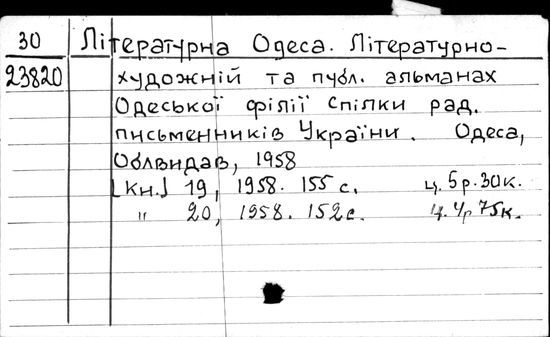 30 Літературна Одеса. Літературно-
23820 художній та публ. альманах
Одеської філії Спілки рад.
письменників України. Одеса,
Облвидав, 1958
[Кн.] 19, 1958. 155 с. ц. 5 р. 30 к.
" 20, 1958. 152 с. ц. 4 р 75 к.